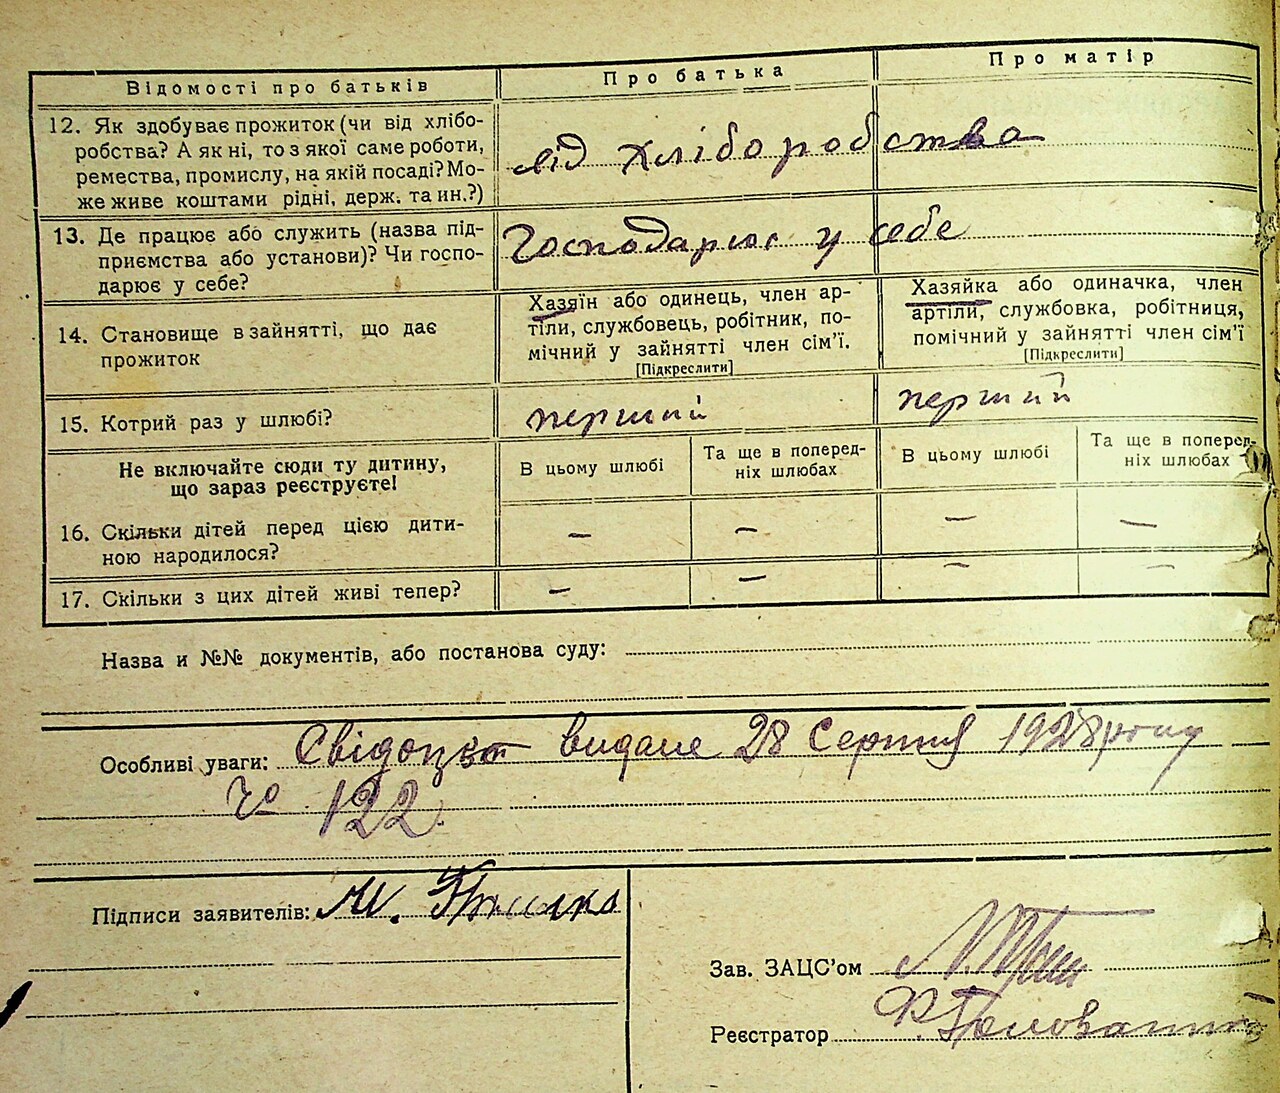 Відомості про батьків
Про батька
Про матір
12. Як здобуває прожиток (чи від хлібо-
робства? А як ні, то з якої саме роботи,
ремества, промислу, на якій посаді? Мо-
же живе коштами рідні, держ. та ин.?)
від хліборобства
13. Де працює або служить (назва під-
приємства або установи)? Чи госпо-
дарює у себе?
Господарює у себе
14. Становище в зайнятті, що дає
прожиток
Хазяїн або одинець, член ар-
тіли, службовець, робітник, по-
мічний у зайнятті член сім'ї.
[Підкреслити]
Хазяйка або одиначка, член
артіли, службовка, робітниця,
помічний у зайнятті член сім'ї
[Підкреслити]
15. Котрий раз у шлюбі?
перший
перший
Не включайте сюди ту дитину,
що зараз реєструєте!
В цьому шлюбі
Та ще в поперед-
ніх шлюбах
В цьому шлюбі
Та ще в поперед-
ніх шлюбах
16. Скільки дітей перед цією дити-
ною народилося?
— — — —
17. Скільки з цих дітей живі тепер?
— — — —
Назва и №№ документів, або постанова суду:
Особливі уваги: Свідоцтв видане 28 Серпня 1928 року
№ 122.
Підписи заявителів: М.
Зав. ЗАЦС'ом
Реєстратор